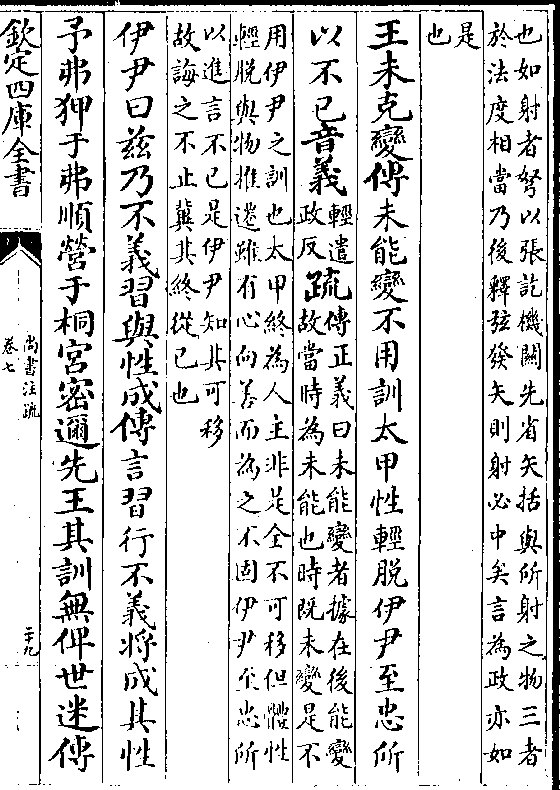 也如射者弩以張訖機關先省矢括與所射之物三者
於法度相當乃後釋弦發矢則射必中矣言為政亦如
是
也
王未克變傳未能變不用訓太甲性輕脱伊尹至忠所
以不已音義輕遣
政反疏傳正義曰未能變者據在後能變
故當時為未能也時既未變是不
用伊尹之訓也太甲終為人主非是全不可移但體性
輕脱與物推遷雖有心向善而為之不固伊尹至忠所
以進言不已是伊尹知其可移
故誨之不止冀其終從已也
伊尹曰兹乃不義習與性成傳言習行不義將成其性
予弗狎于弗順營于桐宫密邇先王其訓無俾世迷傳
欽定四庫全書
尚書注疏
卷七
二十九